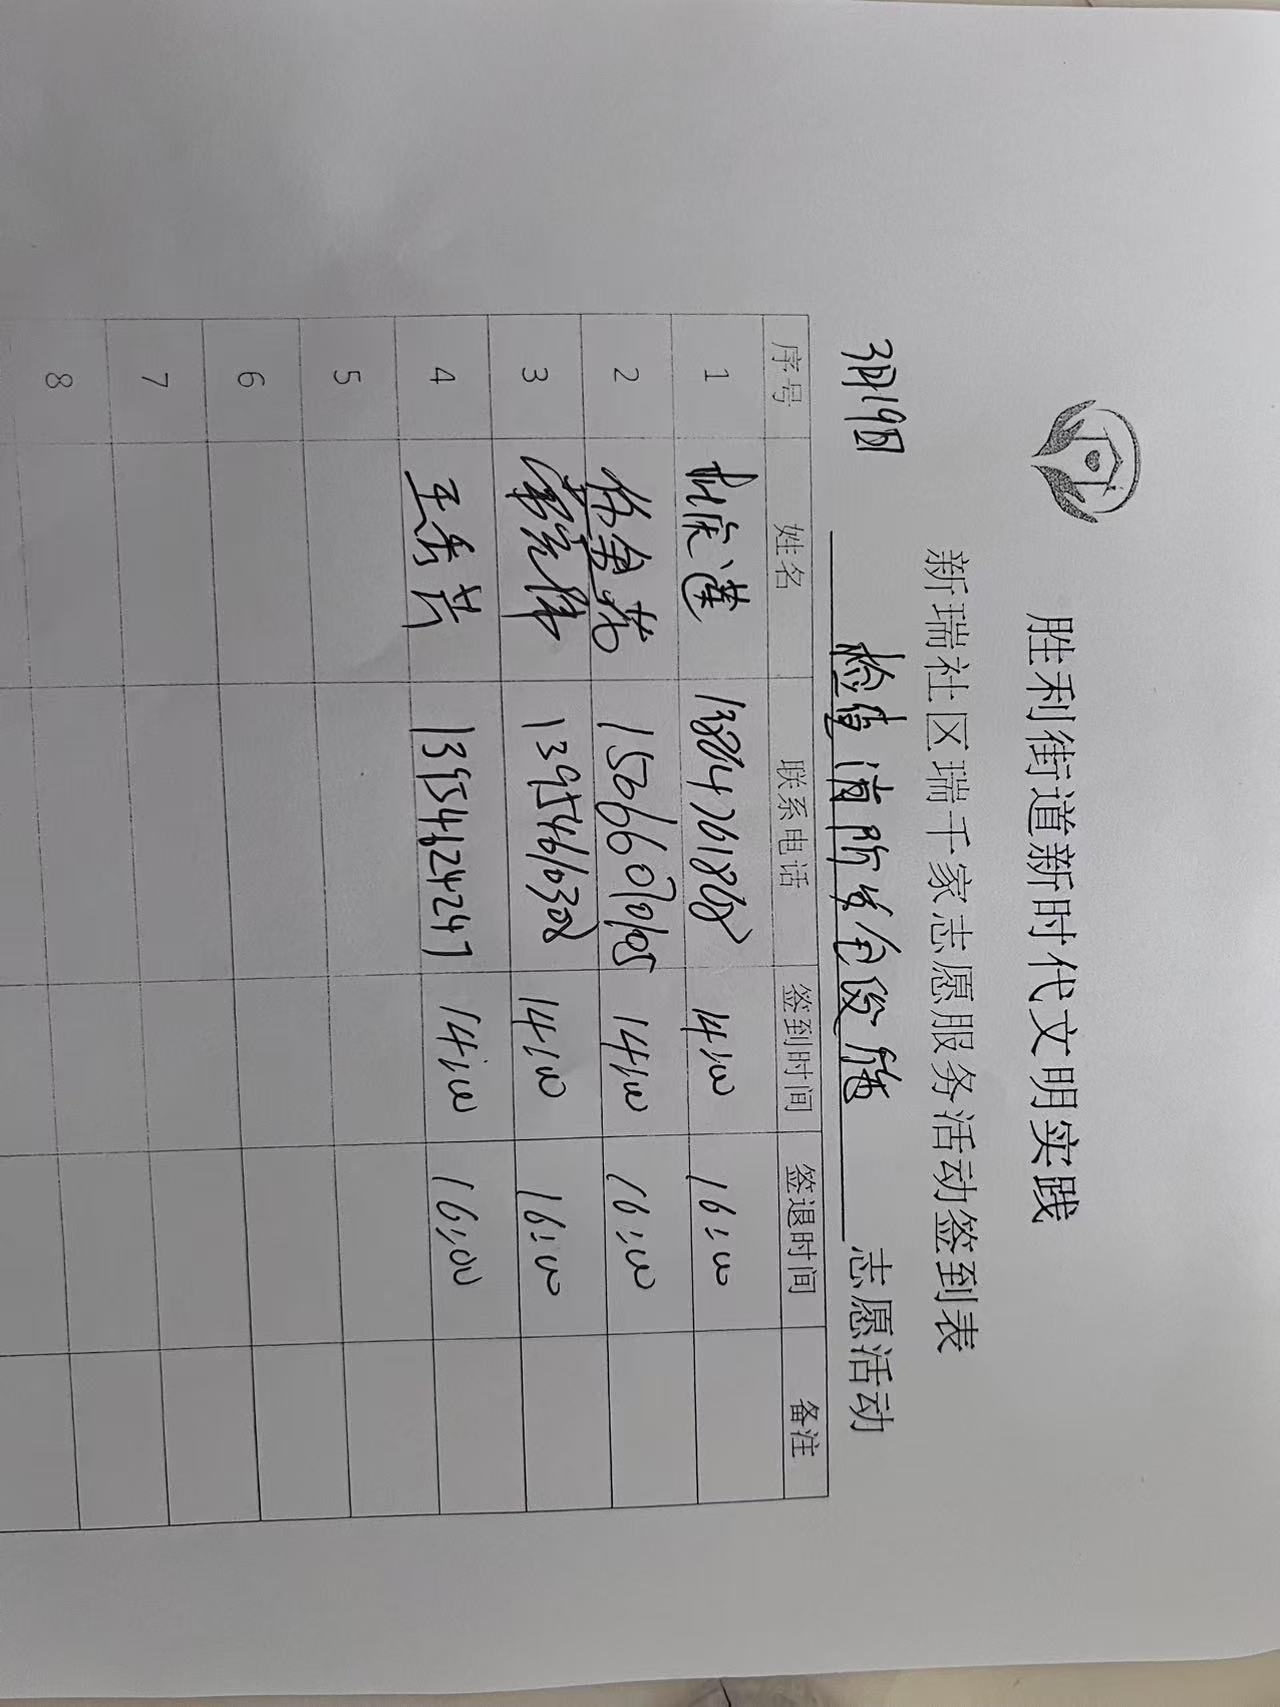 胜利街道新时代文明实践
新瑞社区瑞千家志愿服务活动签到表
3月19日 检查消防安全设施 志愿活动
序号 姓名 联系电话 签到时间 签退时间 备注
1 14:00 16:00
2 14:00 16:00
3 13954610308 14:00 16:00
4 王秀芳 13954624247 14:00 16:00
5
6
7
8